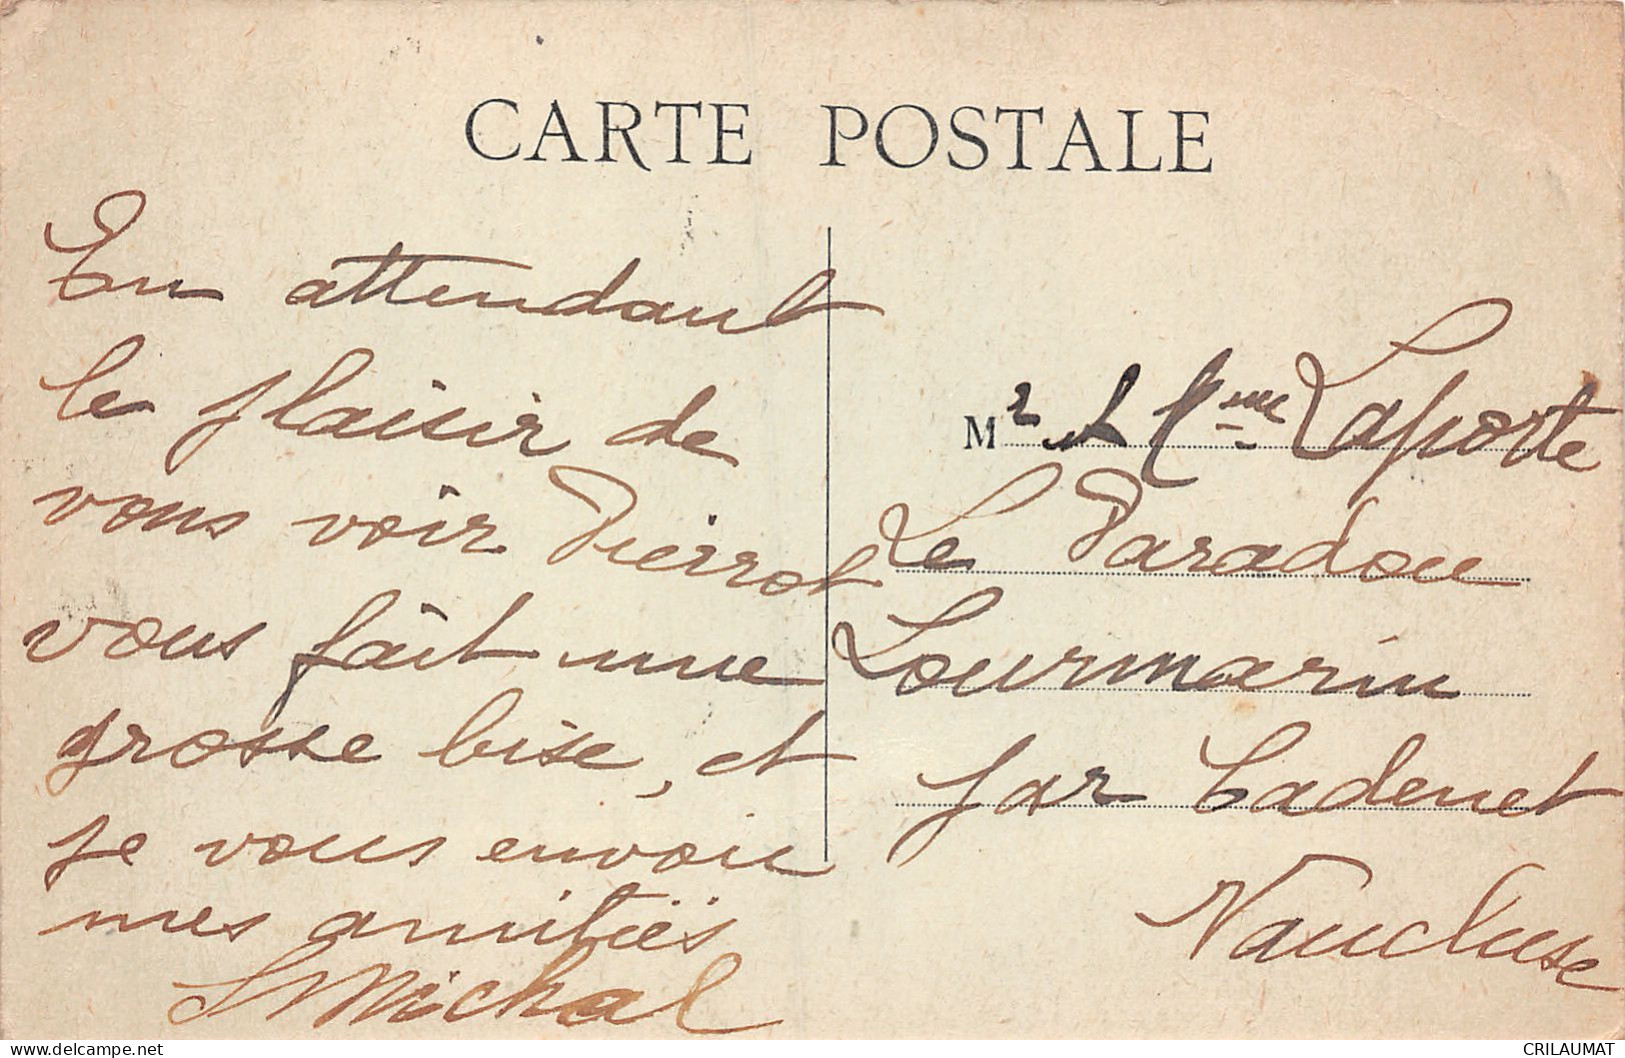 CARTE POSTALE
En attendant
le plaisir de
vous voir Pierrot
vous fait une
grosse bise, et
je vous envoie
mes amitiés
Michal
Mr et Mme Laporte
Le Paradou
Lourmarin
par Cadenet
Vaucluse
www.delcampe.net
CRILAUMAT